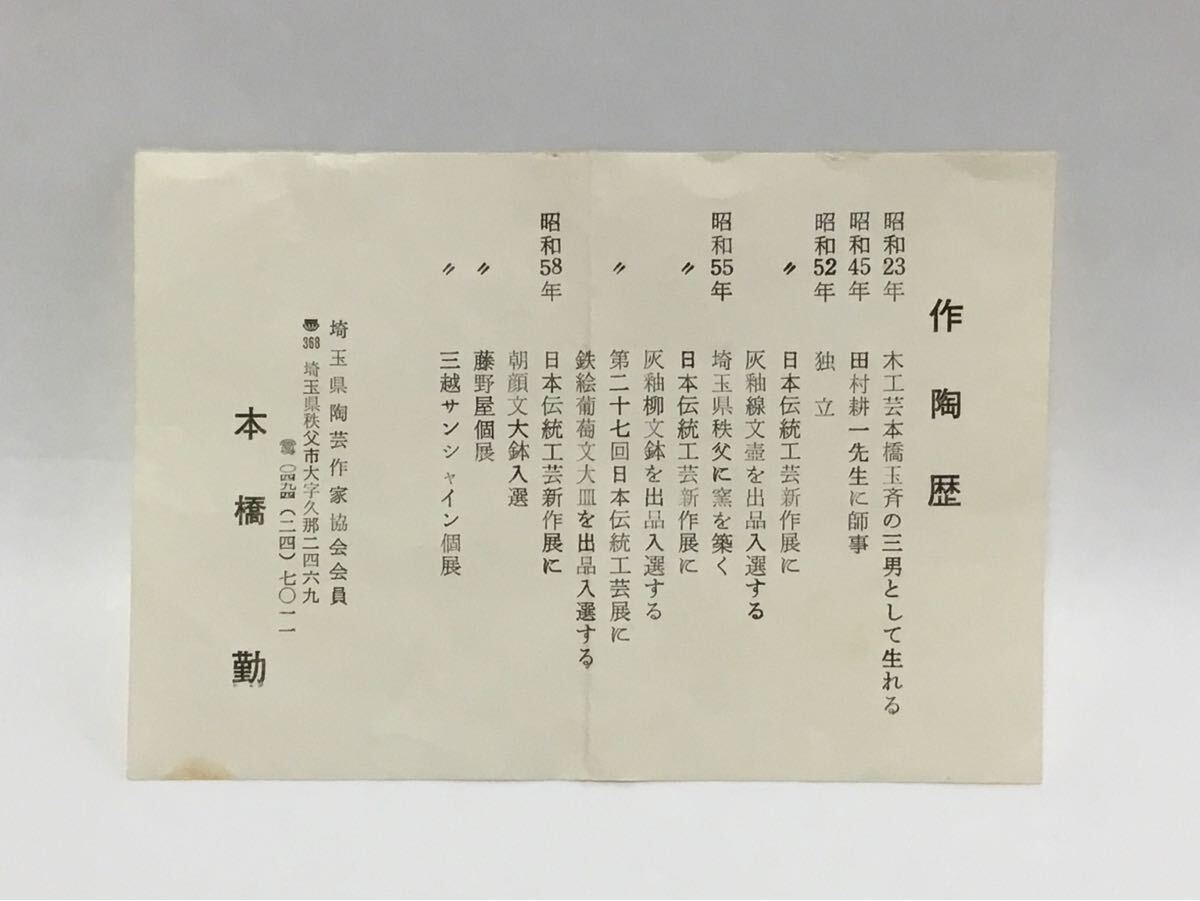 作陶歴
昭和23年 木工芸本橋玉斉の三男として生れる
昭和45年 田村耕一先生に師事
昭和52年 独立
〃 日本伝統工芸新作展に
灰釉線文壺を出品入選する
昭和55年 埼玉県秩父に窯を築く
〃 日本伝統工芸新作展に
灰釉柳文鉢を出品入選する
〃 第二十七回日本伝統工芸展に
鉄絵葡萄文大皿を出品入選する
昭和58年 日本伝統工芸新作展に
朝顔文大鉢入選
〃 藤野屋個展
〃 三越サンシャイン個展
埼玉県陶芸作家協会会員
368 埼玉県秩父市大字久那二四六九
〇四九四(二四)七〇一一
本橋勤